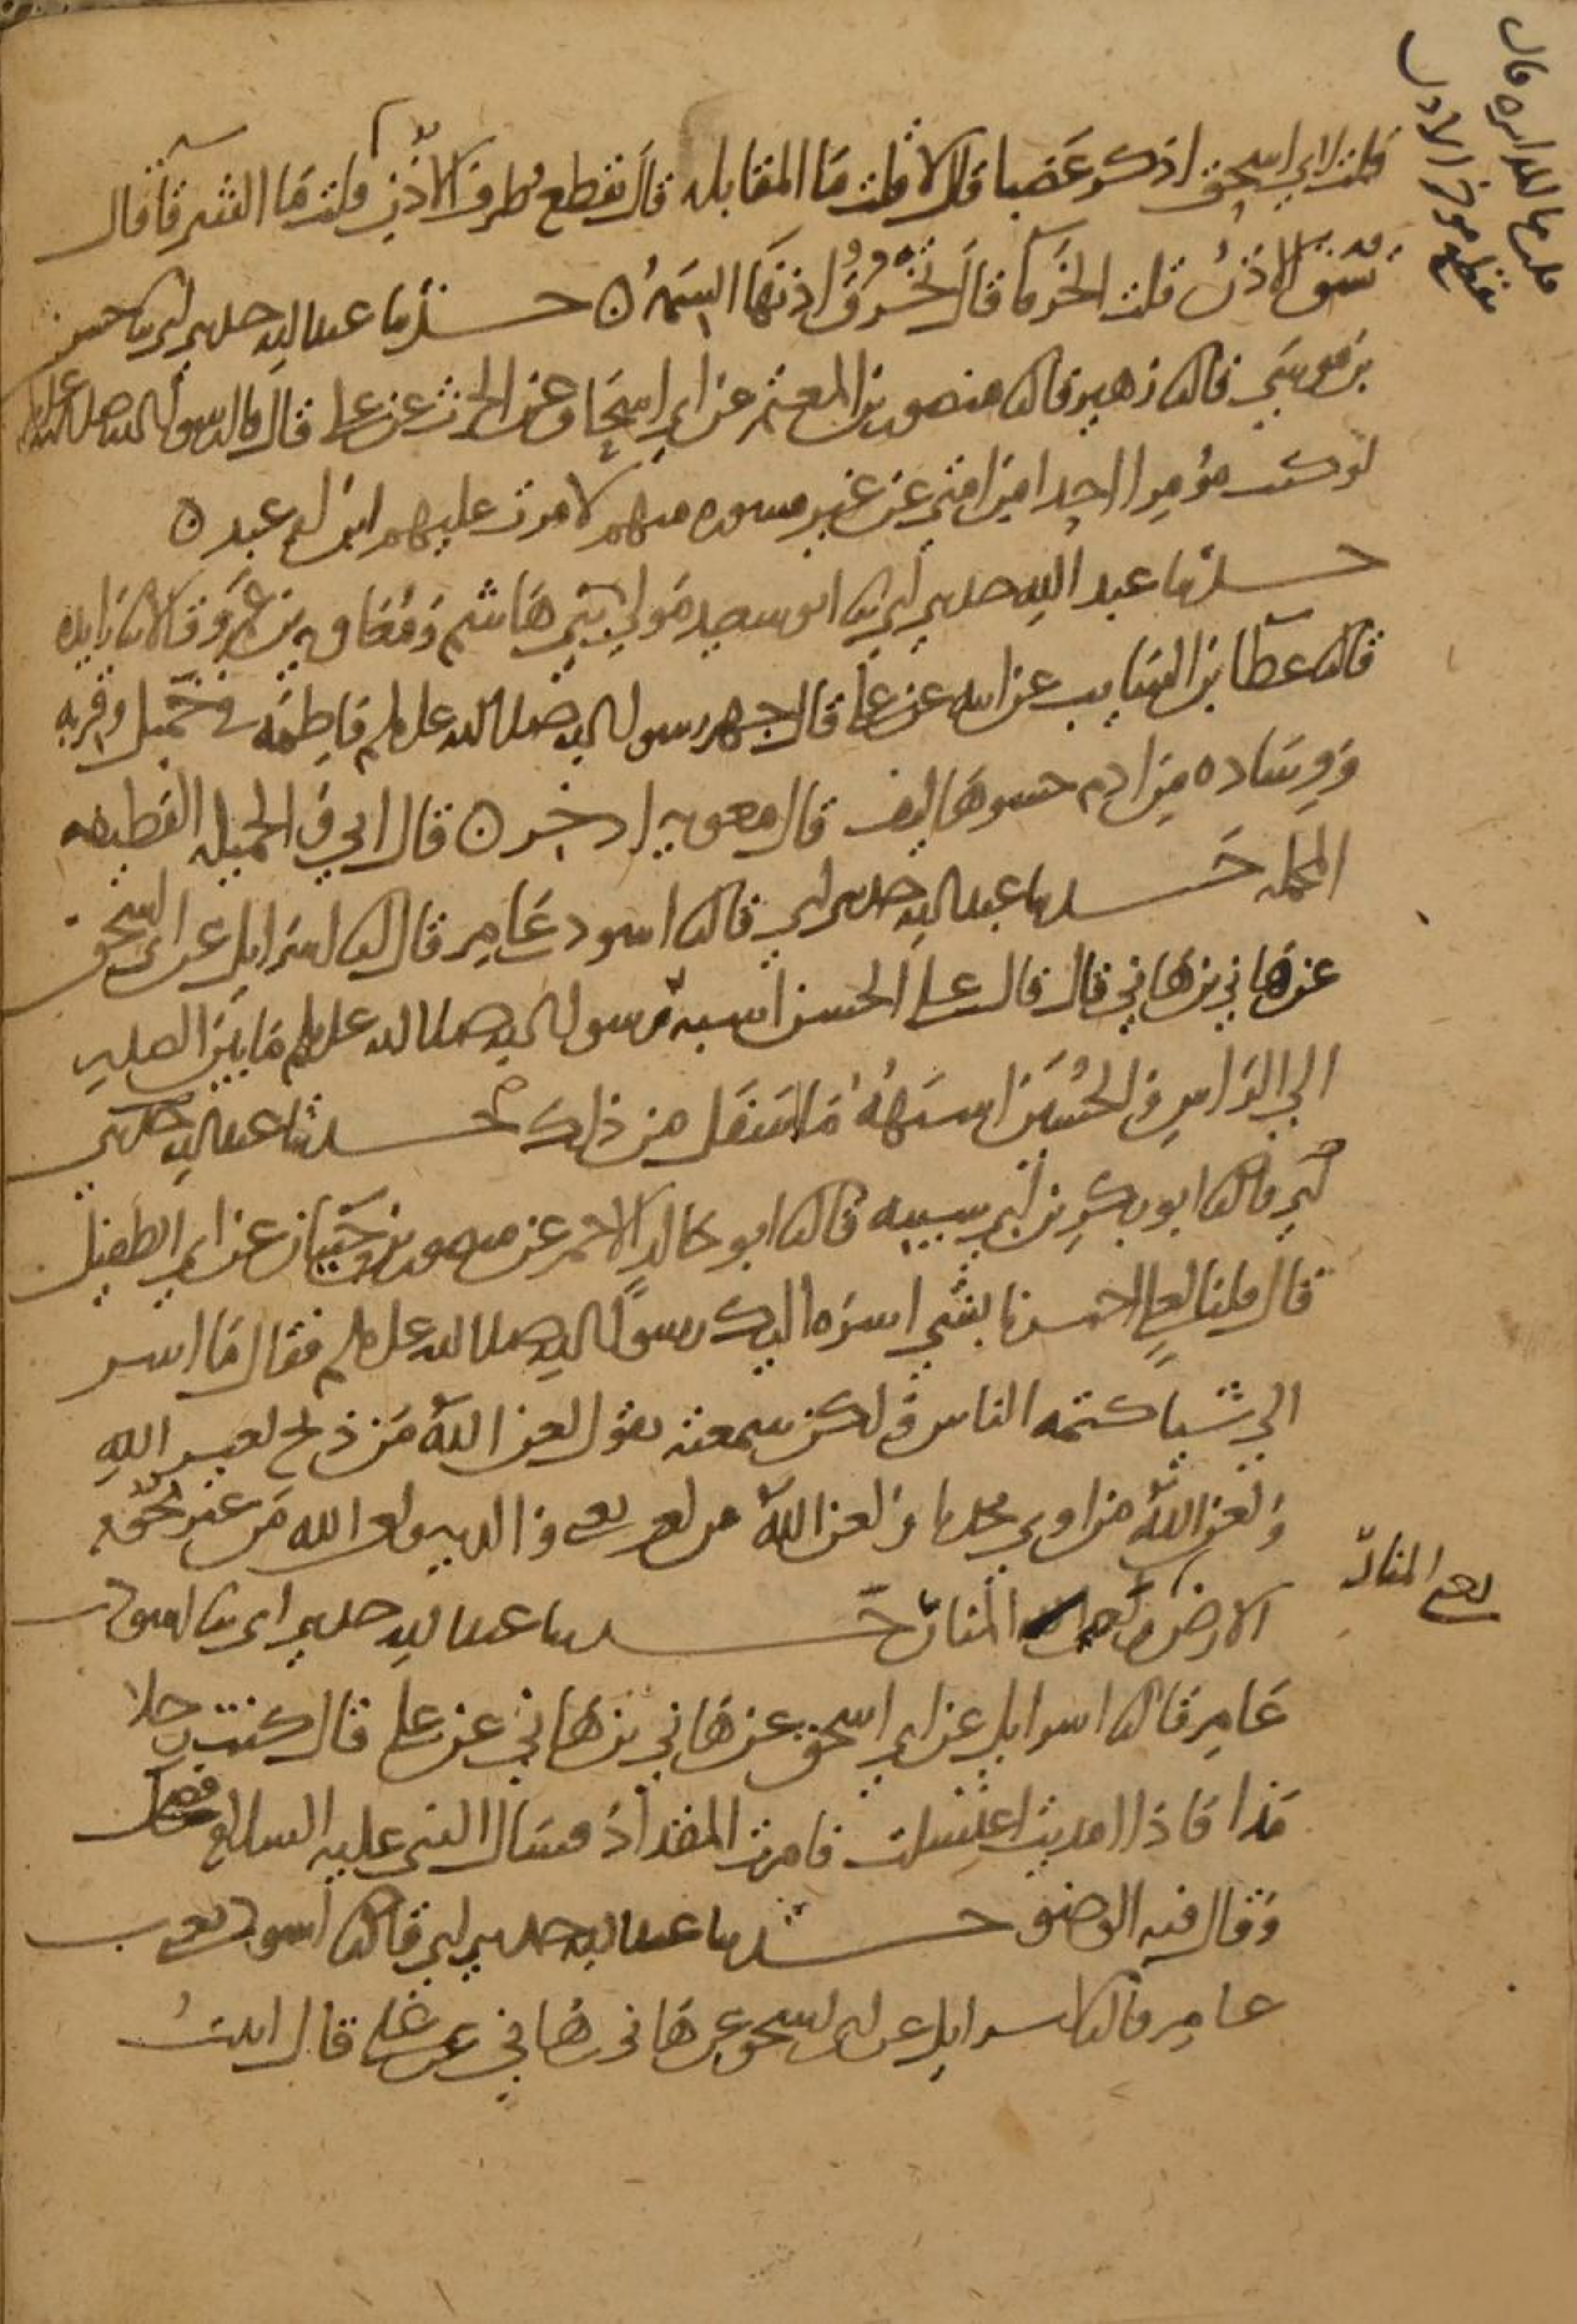 قلت لابي اسحق اذكر عضبا قال لا قلت ما المقابلة قال تقطع طرف الاذن قلت ما الشرقا قال
تشق الاذن قلت الخرقا قال تخرق اذنها السمة حدثنا عبد الله حدثني ابي ثنا حسن
بن موسي قال ثنا زهير قال ثنا منصور بن المعتمر عن ابي اسحاق عن الحرث عن علي قال قال رسول الله صلى الله عليه وسلم
لو كنت مؤمرا احدا من امتي عن غير مشورة منهم لامرت عليهم ابن ام عبد
حدثنا عبد الله حدثني ابي ثنا ابو سعيد مولي بني هاشم ومعاوية بن عمرو قالا ثنا زايدة
قال ثنا عطا بن السايب عن ابيه عن علي قال جهز رسول الله صلى الله عليه وسلم فاطمة في خميل وقربة
ووسادة من ادم حشوها ليف قال معوية اذخر قال ابي في الخميلة القطيفة
المخملة حدثنا عبد الله حدثني ابي قال ثنا اسود عامر قال انا اسرايل عن ابي اسحق
عن هاني بن هاني قال قال علي الحسن اشبه رسول الله صلى الله عليه وسلم ما بين الصدر
الي الراس والحسين اشبهه ما اسفل من ذلك حدثنا عبد الله حدثني
ابي قال ثنا ابو بكر بن ابي شيبة قال ثنا ابو خالد الاحمر عن منصور بن حيان عن ابي الطفيل
قال قلنا لعلي اخبرنا بشي اسره اليك رسول الله صلى الله عليه وسلم فقال ما اسر
الي شيا كتمه الناس ولكن سمعته يقول لعن الله من ذبح لغير الله
ولعن الله من اوي محدثا ولعن الله من لعن والديه ولعن الله من غير تخوم
الارض المنار حدثنا عبد الله حدثني ابي ثنا اسود بن
عامر قال ثنا اسرايل عن ابي اسحق عن هاني بن هاني عن علي قال كنت رجلا
مذا فاذا امذيت اغتسلت فامرت المقداد فسال النبي عليه السلام فضحك
وقال فيه الوضو حدثنا عبد الله حدثني ابي قال ثنا اسود يعني بن
عامر قال انا اسرايل عن ابي اسحق عن هاني بن هاني عن علي قال اتيت
قلت ما المدابرة قال
يقطع موخر الاذن
يعني المنار